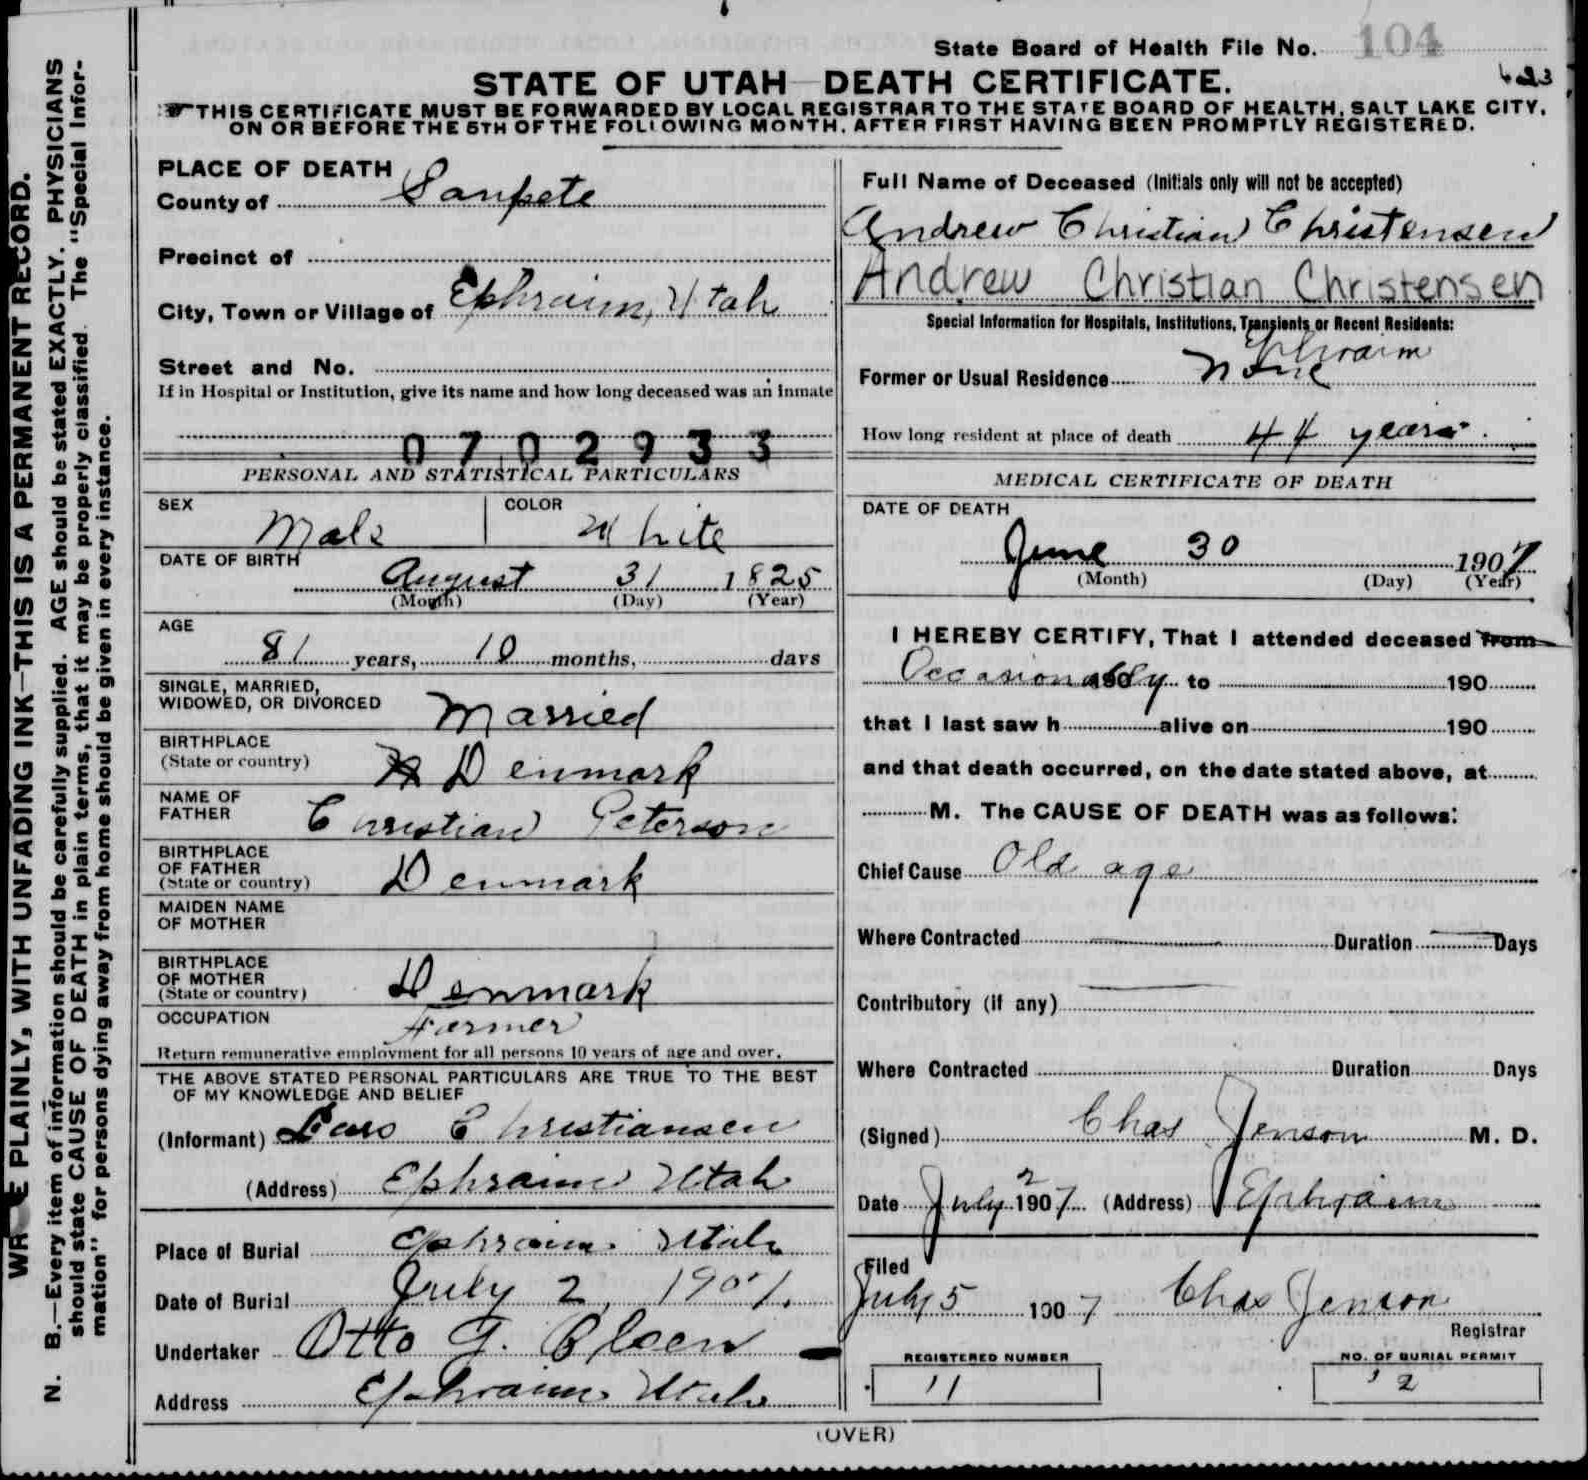 State Board of Health File No. 104
623
STATE OF UTAH—DEATH CERTIFICATE.
THIS CERTIFICATE MUST BE FORWARDED BY LOCAL REGISTRAR TO THE STATE BOARD OF HEALTH, SALT LAKE CITY,
ON OR BEFORE THE 5TH OF THE FOLLOWING MONTH, AFTER FIRST HAVING BEEN PROMPTLY REGISTERED.
WRITE PLAINLY, WITH UNFADING INK—THIS IS A PERMANENT RECORD.
N. B.—Every item of information should be carefully supplied. AGE should be stated EXACTLY. PHYSICIANS
should state CAUSE OF DEATH in plain terms, that it may be properly classified. The "Special Infor-
mation" for persons dying away from home should be given in every instance.
PLACE OF DEATH
County of Sanpete
Precinct of
City, Town or Village of Ephraim, Utah
Street and No.
If in Hospital or Institution, give its name and how long deceased was an inmate
0702933
PERSONAL AND STATISTICAL PARTICULARS
SEX Male COLOR White
DATE OF BIRTH
August 31 1825
(Month) (Day) (Year)
AGE
81 years, 10 months, days
SINGLE, MARRIED,
WIDOWED, OR DIVORCED Married
BIRTHPLACE
(State or country) Denmark
NAME OF
FATHER Christian Peterson
BIRTHPLACE
OF FATHER
(State or country) Denmark
MAIDEN NAME
OF MOTHER
BIRTHPLACE
OF MOTHER
(State or country) Denmark
OCCUPATION Farmer
Return remunerative employment for all persons 10 years of age and over.
THE ABOVE STATED PERSONAL PARTICULARS ARE TRUE TO THE BEST
OF MY KNOWLEDGE AND BELIEF
(Informant) Lars Christiansen
(Address) Ephraim Utah
Place of Burial Ephraim Utah
Date of Burial July 2, 1907.
Undertaker Otto G. Olsen
Address Ephraim Utah
Full Name of Deceased (Initials only will not be accepted)
Andrew Christian Christensen
Andrew Christian Christensen
Special Information for Hospitals, Institutions, Transients or Recent Residents:
Ephraim
Former or Usual Residence None
How long resident at place of death 44 years
MEDICAL CERTIFICATE OF DEATH
DATE OF DEATH
June 30 1907
(Month) (Day) (Year)
I HEREBY CERTIFY, That I attended deceased from
Occasionally 190 to 190
that I last saw h alive on 190
and that death occurred, on the date stated above, at
M. The CAUSE OF DEATH was as follows:
Chief Cause Old age
Where Contracted Duration Days
Contributory (if any)
Where Contracted Duration Days
(Signed) Chas Jenson M. D.
Date July 2 1907 (Address) Ephraim
Filed
July 5 1907 Chas Jenson
Registrar
REGISTERED NUMBER
11
NO. OF BURIAL PERMIT
2
(OVER)